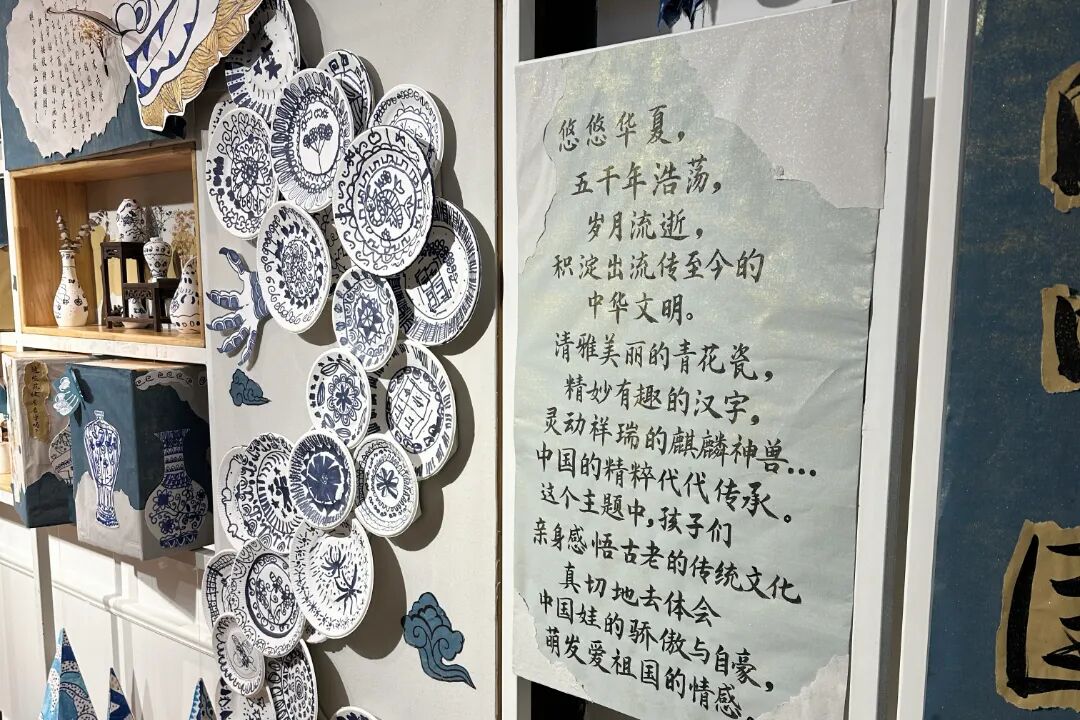 悠悠华夏，
五千年浩荡，
岁月流逝，
积淀出流传至今的
中华文明。
清雅美丽的青花瓷，
精妙有趣的汉字，
灵动祥瑞的麒麟神兽...
中国的精粹代代传承。
这个主题中，孩子们
亲身感悟古老的传统文化
真切地去体会
中国娃的骄傲与自豪，
萌发爱祖国的情感。
国